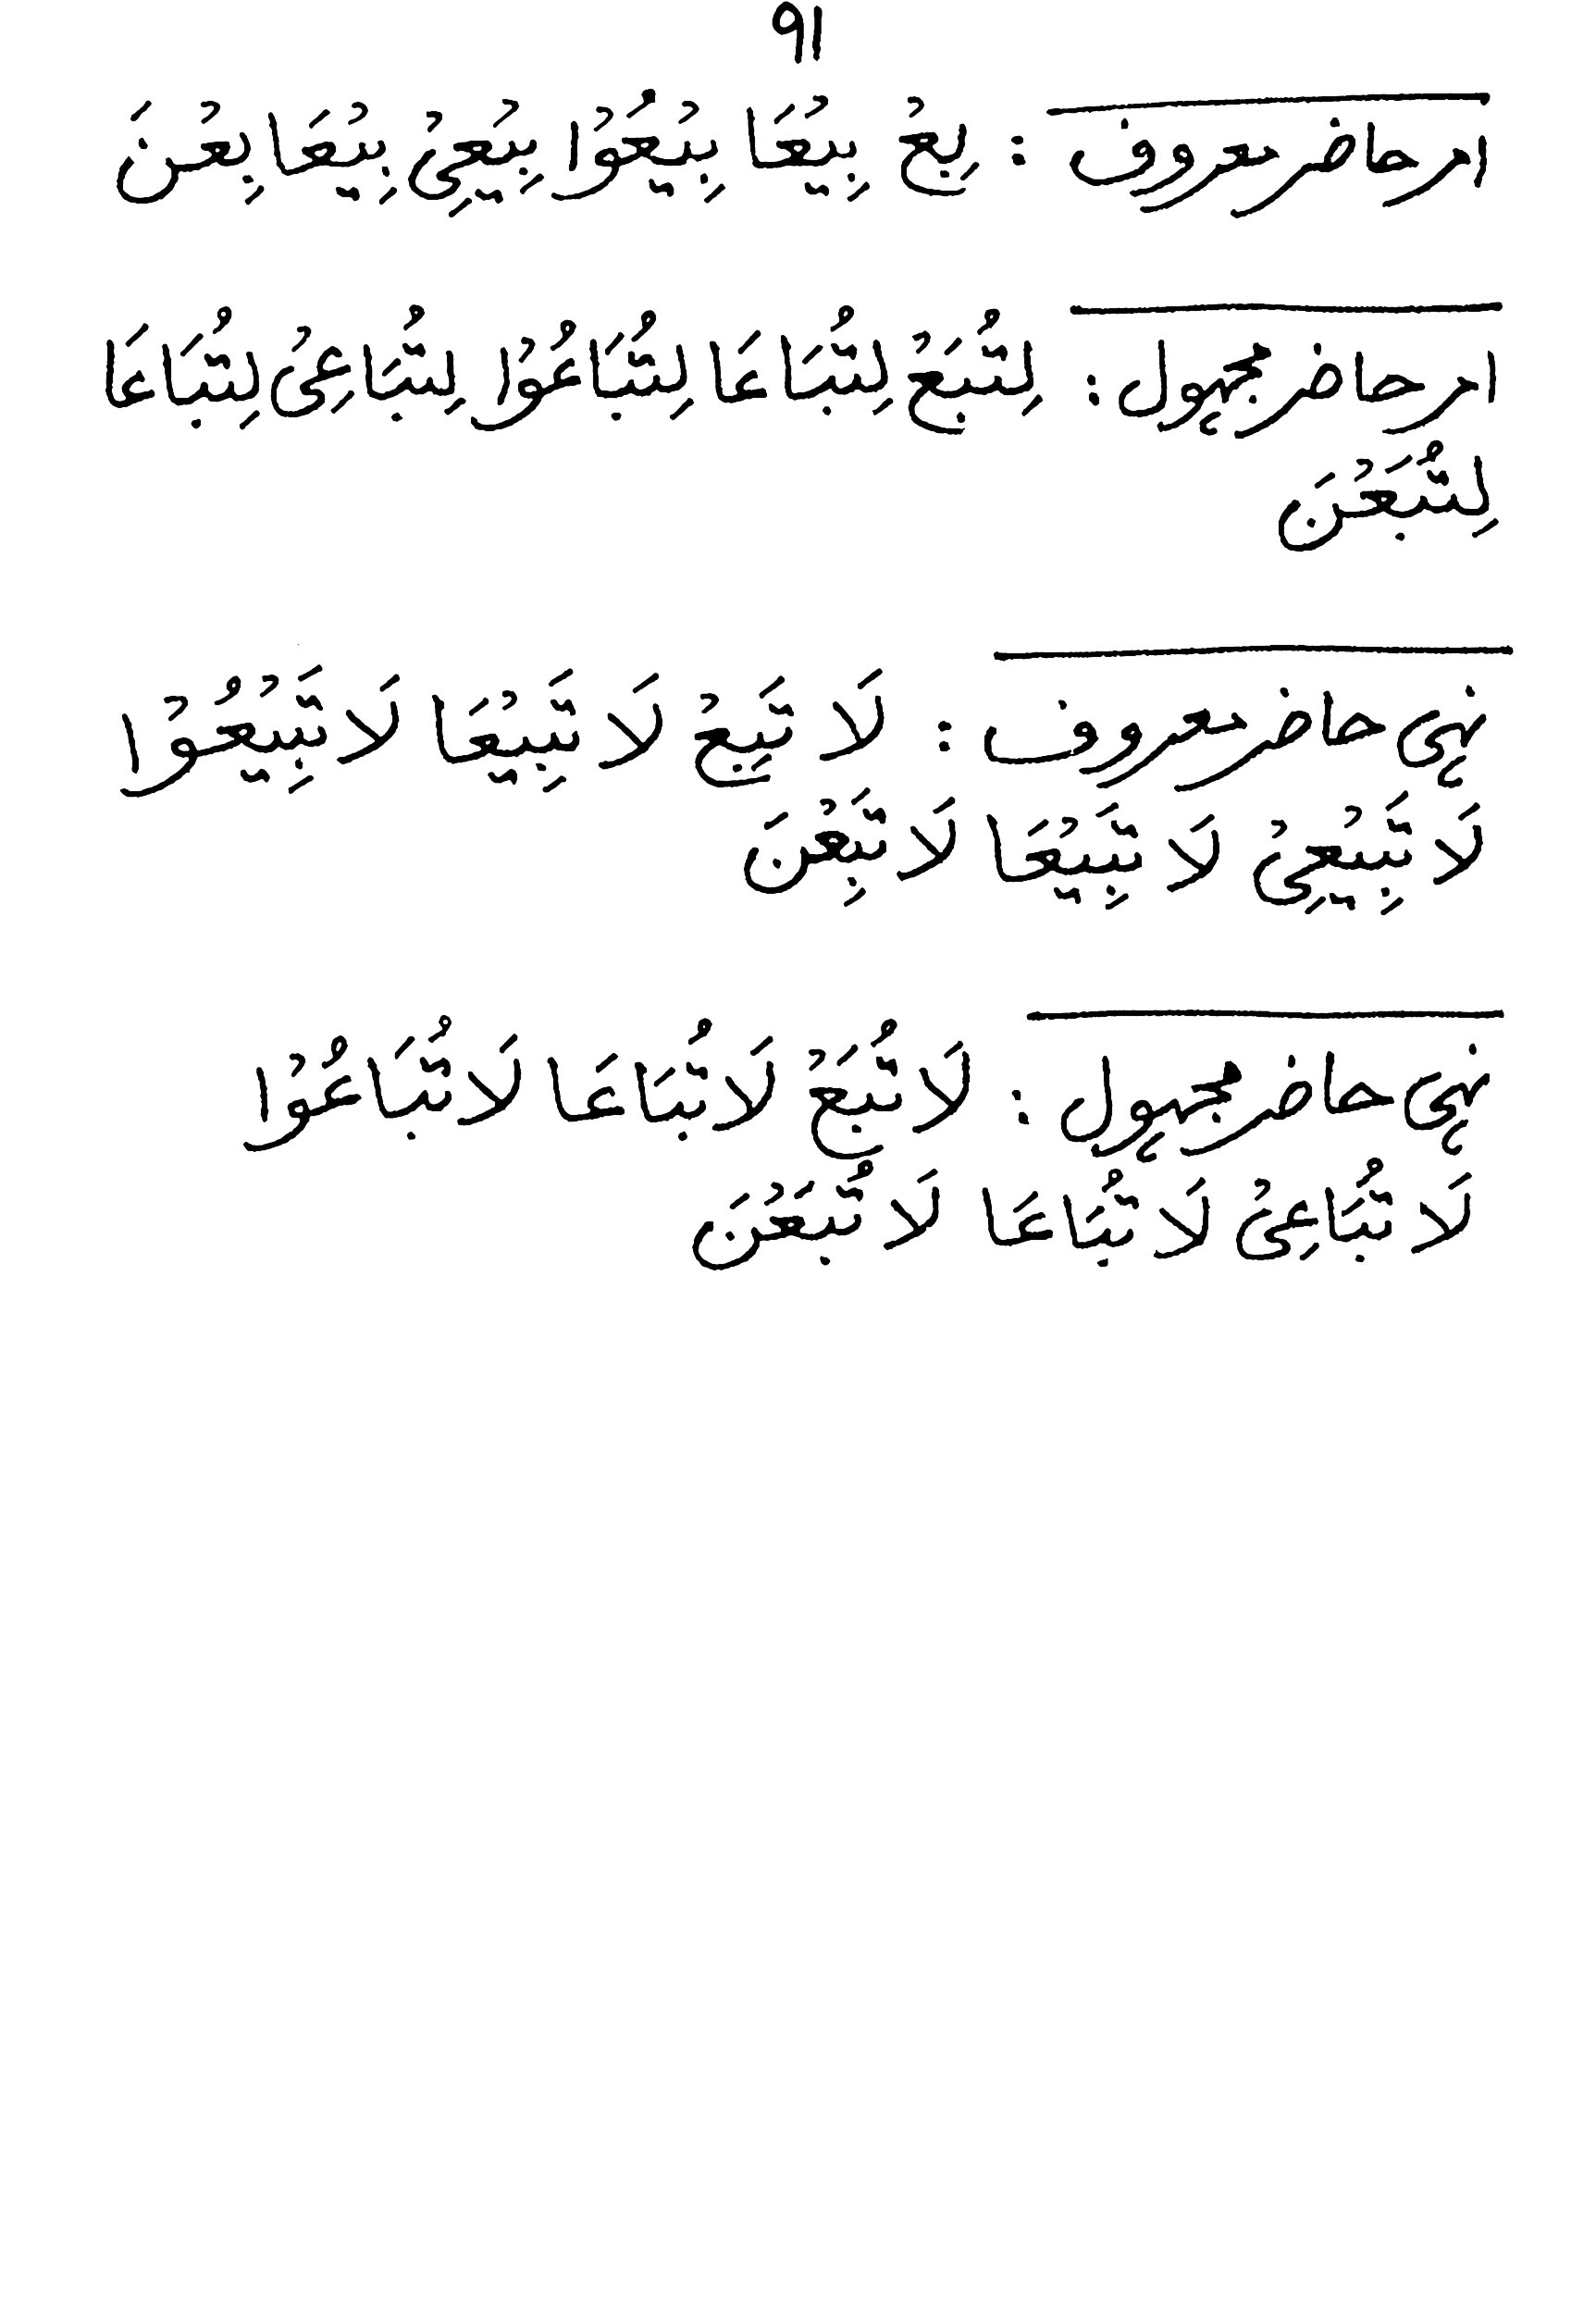 ۹۱
امر حاضر معروف : بِعْ بِيْعَا بِيْعُوْا بِيْعِيْ بِيْعَا بِعْنَ
امر حاضر مجہول : لِتُبَعْ لِتُبَاعَا لِتُبَاعُوْا لِتُبَاعِىْ لِتُبَاعَا
لِتُبَعْنَ
نہی حاضر معروف : لَا تَبِعْ لَا تَبِيْعَا لَا تَبِيْعُوْا
لَا تَبِيْعِيْ لَا تَبِيْعَا لَا تَبِعْنَ
نہی حاضر مجہول : لَا تُبَعْ لَا تُبَاعَا لَا تُبَاعُوْا
لَا تُبَاعِىْ لَا تُبَاعَا لَا تُبَعْنَ